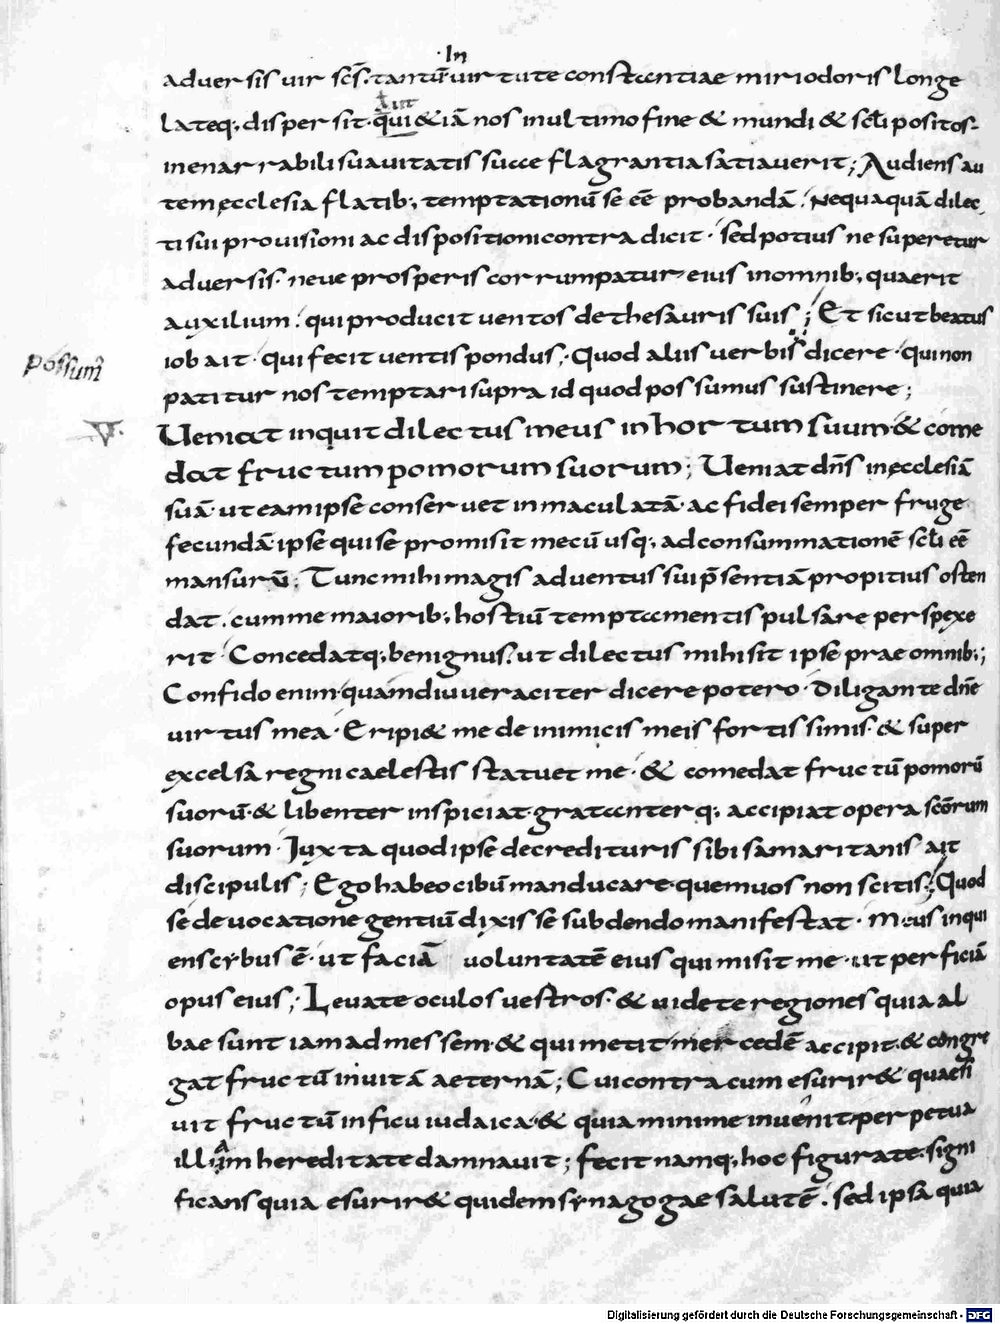 ·In
aduersis uir scs̄. tantūuirtute constantiae miri odoris longe
aut
lateq; dispersit. qui &iā nos in ultimo fine & mundi & sclī positos.
inenarrabili suauitatis suae flagrantia satiauerit; Audiens au
tem ęcclesia flatib; temptationū se eē probandā. Nequaquā dilec
ti sui prouisioni ac dispositioni contradicit · sed potius ne superetur
aduersis· neue prosperis corrumpatur eius in omnib; quaerit
auxilium. qui producit uentos de thesauris suis; Et sicut beatus
iob ait · qui fecit uentis pondus; Quod aliis uerbis dicere · qui non
possum̄
patitur nos temptari supra id quod possumus sustinere;
V·
Ueniat inquit dilectus meus in hortum suum & come
dat fructum pomorum suorum; Ueniat dn̄s in ęcclesiā
suā· ut eam ipse conseruet inmaculatā· ac fidei semper fruge
fecundā ipse qui se promisit mecū usq; ad consummationē sclī eē
mansurū; Tunc mihi magis aduentus sui p̄sentiā propitius osten
dat. cum me maiorib; hostiū temptamentis pulsare perspexe
rit · Concedatq; benignus. ut dilectus mihi sit ipse prae omnib;;
Confido enim quamdiu ueraciter dicere potero· Diligam te dn̄e
uirtus mea· Eripi& me de inimicis meis fortissimis· & super
excelsā regni caelestis statuet me · & comedat fructū pomorū
suorū· & libenter inspiciat· gratanterq; accipiat opera scōrum
suorum · Juxta quod ipse de credituris sibi samaritanis ait
discipulis; Ego habeo cibū manducare· quem uos non scitis; Quod
se de uocatione gentiū dixisse subdendo manifestat · Meus inqui
ens cybus ē· ut faciā uoluntatē eius qui misit me · ut perficiā
opus eius; Leuate oculos uestros· & uidete regiones quia al
bae sunt iam ad messem· & qui metit mercedē accipit· & congre
gat fructū in uitā aeternā; Cui contra cum esurir& quaesi
uit fructū in ficu iudaica· & quia minime inuenit· perpetua
illam hereditate damnauit; fecit namq; hoc figurate· signi
ficans quia esurir& quidem synagogae salutē. sed ipsā quia
Digitalisierung gefördert durch die Deutsche Forschungsgemeinschaft - DFG